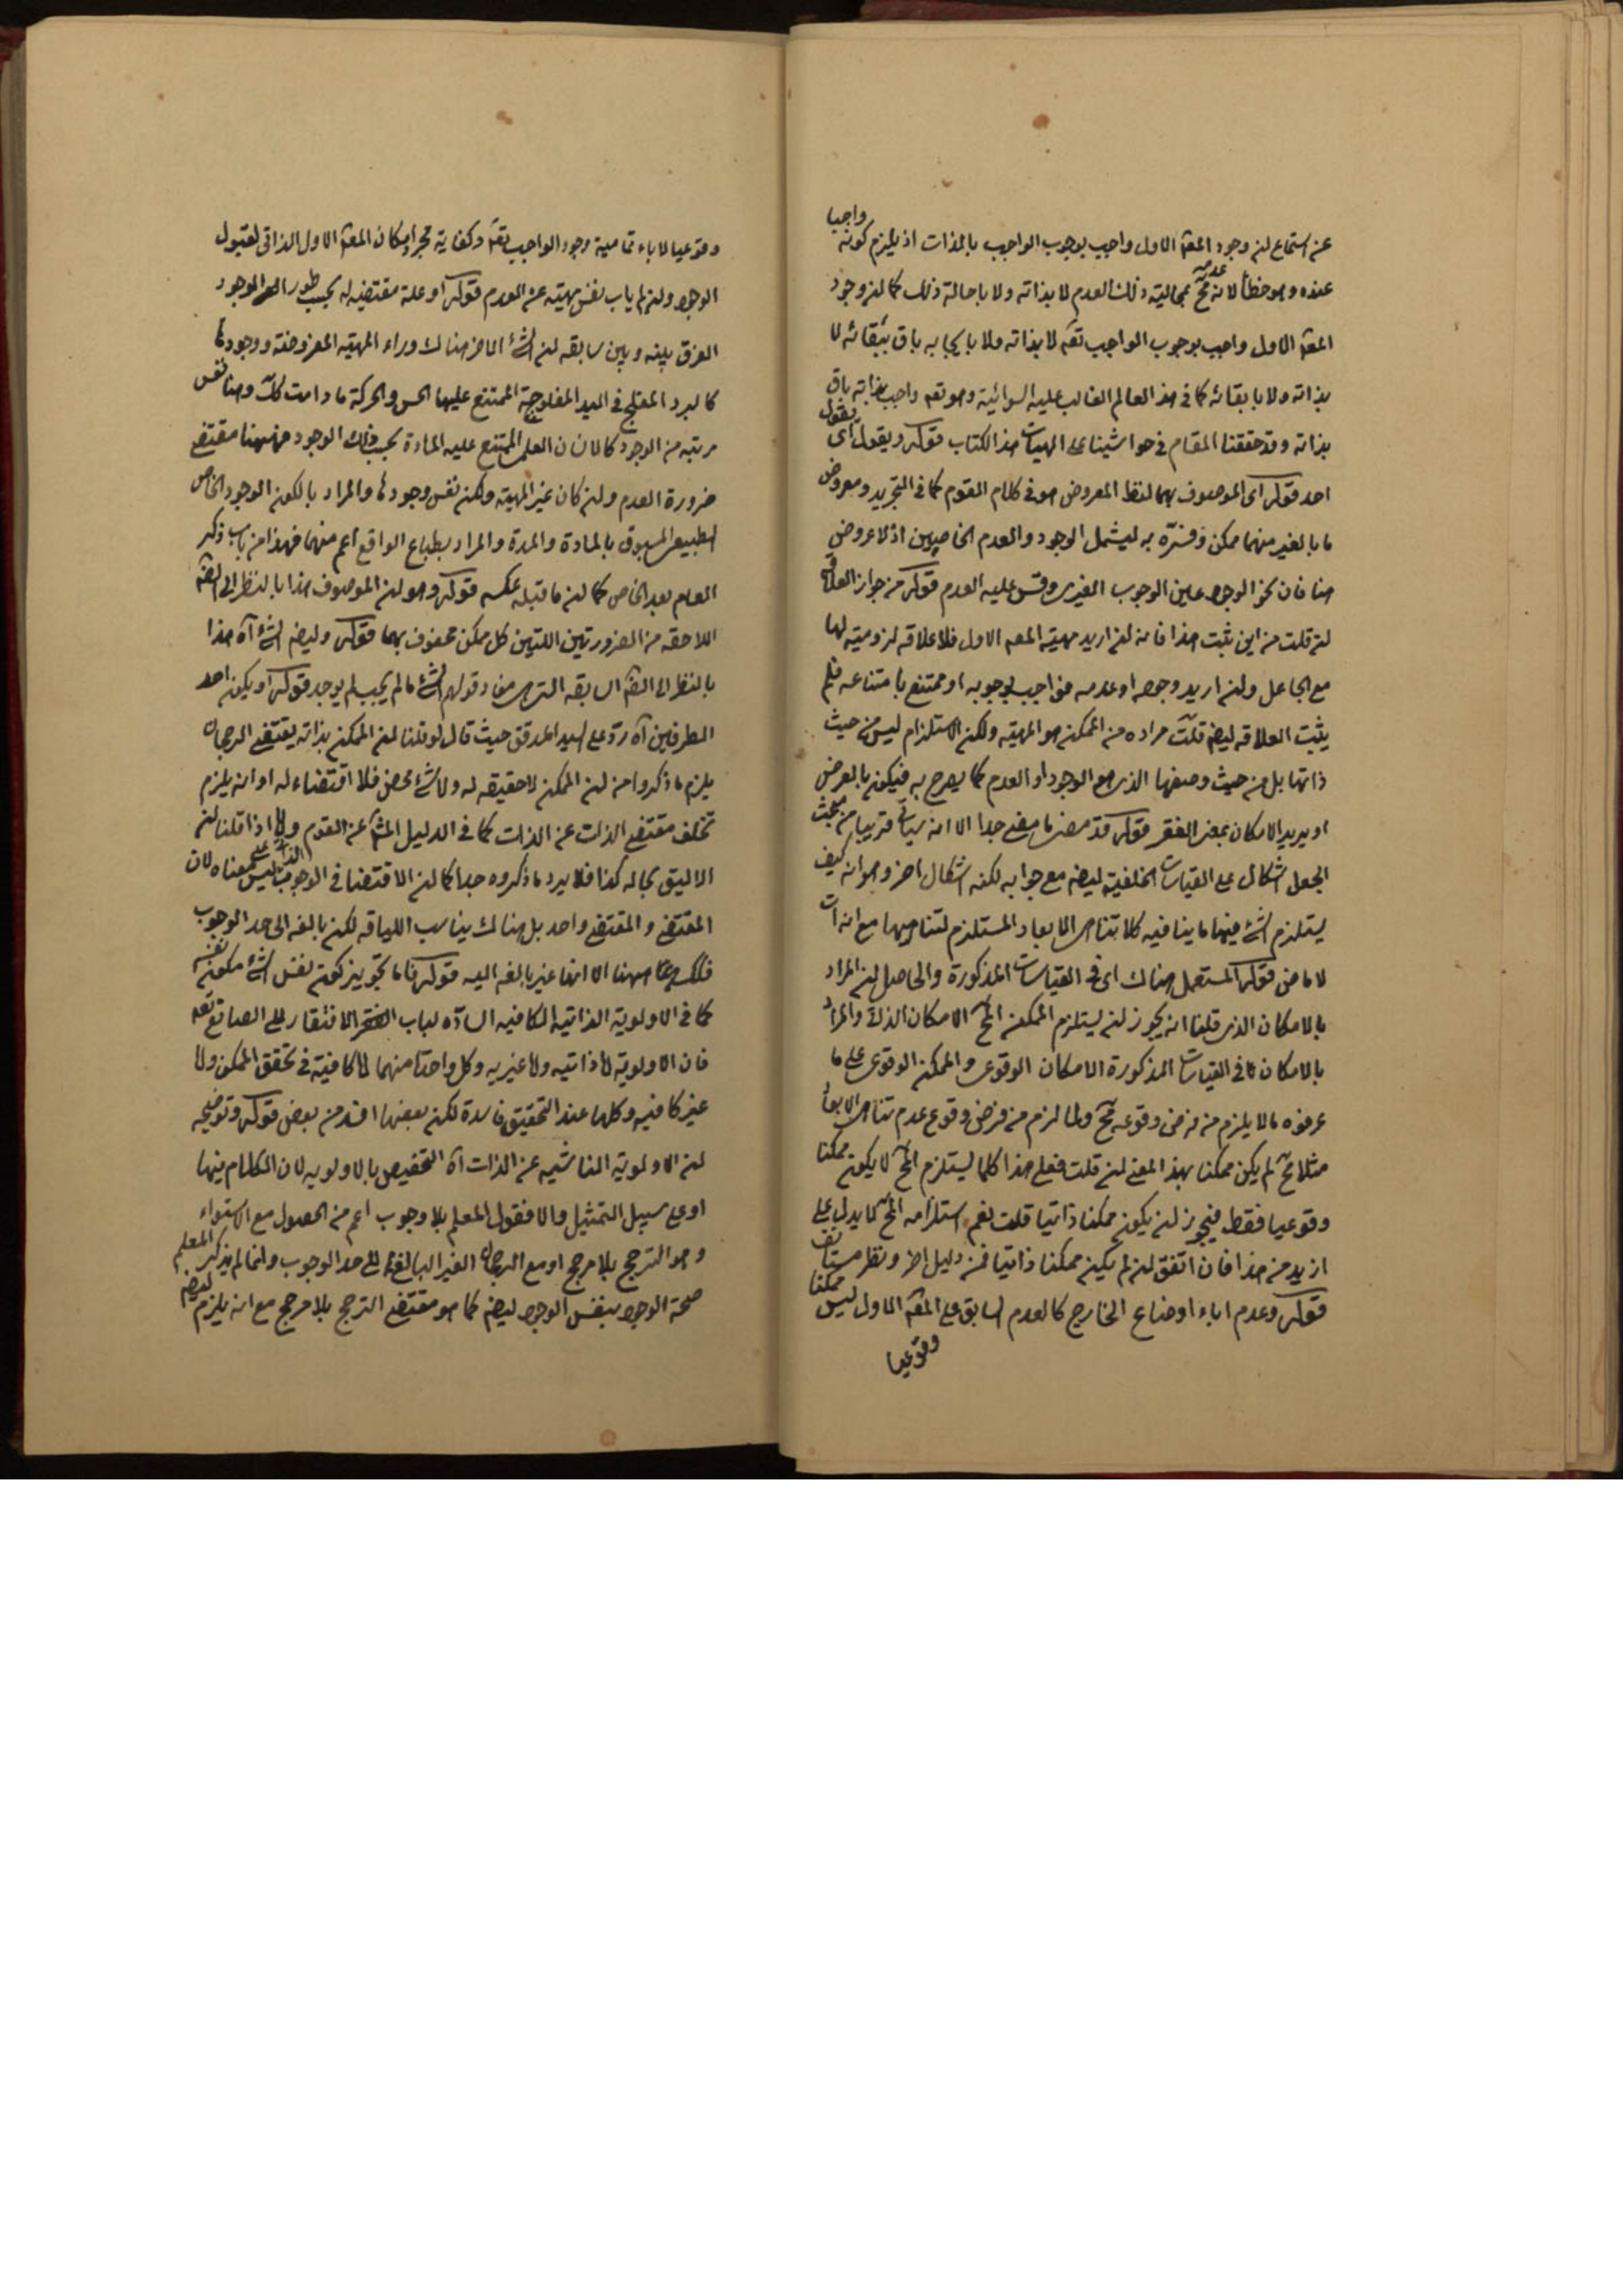 عن استماع ان وجود المعه الاول واجب بوجوب الواجب بالذات اذ يلزم كونه واجبا
عنده وهو خطأ لانه عدمه مح بمحاليته ذلك العدم لا بذاته ولا باحالة ذلك كما ان وجود
المعه الاول واجب بوجوب الواجب تعه لا بذاته ولا بايجابه باق ببقائه لا
بذاته ولا بابقائه كما في هذا العالم الغالب عليه السوائية وهو تعه واجب بذاته باق
بذاته وقد حققنا المقام في حواشينا على الهيات هذا الكتاب قوله ويقول اى يقول
احد قوله اى الموصوف بهما لفظ المعروض هو في كلام القوم كما في التجريد ومعروض
ما بالغير منهما ممكن وفسره به ليشمل الوجود والعدم الخاصين اذ لا عروض
هنا فان نحو الوجود عين الوجوب الغيرى وقس عليه العدم قوله من جواز العلاقه
ان قلت من اين ثبت هذا فانه ان اريد مهيته المعه الاول فلا علاقه لزوميته لها
مع الجاعل وان اريد وجوده او عدمه فواجب بوجوبه او ممتنع بامتناعه فلم
يثبت العلاقه ايضه قلت مراده من الممكن هو المهيته ولكن الاستلزام ليس من حيث
ذاتها بل من حيث وصفها الذى هو الوجود او العدم كما يصرح به فيكون بالعرض
او يريد الامكان بمعنى الفقر قوله قد مضى ما مضى جدا الا انه سياتى قريبا من مبحث
الجعل اشكال على القياسات الخلفية ايضه مع جوابه لكنه اشكال اخر وهو انه كيف
يستلزم الشئ فيها ما ينافيه كلا تناهى الابعاد المستلزم لتناهيها مع انه ات
لا ماض قوله المستعمل هناك اى فى القياسات المذكورة والحاصل ان المراد
بالامكان الذى قلنا انه يجوز ان يستلزم الممكن المح الامكان الذاتى والمراد
بالامكان فى القياسات المذكورة الامكان الوقوعى والممكن الوقوعى على ما
عرفوه ما لا يلزم من فرض وقوعه مح ولما لزم من فرض وقوع عدم تناهى الابعاد
مثلا مح لم يكن ممكنا بهذا المعنى ان قلت فعلى هذا كلما يستلزم المح لا يكون ممكنا
وقوعيا فقط فيجوز ان يكون ممكنا ذاتيا قلت نعم استلزامه المح لا يدل على
ازيد من هذا فان اتفق ان لم يكن ممكنا ذاتيا فمن دليل اخر ونظر مستانف
قوله وعدم اباء اوضاع الخارج كالعدم السابق على المعه الاول ليس ممكنا
وقوعيا
وقوعيا لاباء تمامية وجود الواجب تعه وكفاية مجرد امكان المعه الاول الذاتى لقبول
الوجود وان لم ياب نفس مهيته عن العدم قوله او علة مقتضيه له بحسب طور الوجود
الفرق بينه وبين سابقه ان الشئ الاخر هناك وراء المهيته المفروضة ووجودها
كالبرد المفلج فى اليد المفلوجة الممتنع عليها الحس والحركة ما دامت كك وهنا نفس
مرتبه من الوجود كالانسان العقلى الممتنع عليه المادة بحسب ذلك الوجود فههنا مقتضى
ضرورة العدم وان كان غير المهيته ولكن نفس وجودها والمراد بالكون الوجود الخاص
الطبيعى المسبوق بالمادة والمدة والمراد بطباع الواقع اعم منهما فهذا من باب ذكر
العام بعد الخاص كما ان ما قبله عكسه قوله وهو ان الموصوف هذا بالنظر الى الضه
اللاحقه من الضرورتين اللتين كل ممكن محفوف بهما قوله وايضه الشئ اه هذا
بالنظر الى الضه السابقه التى هى مفاد قولهم الشئ ما لم يجب لم يوجد قوله او يكون احد
الطرفين اه رد على السيد المدقق حيث قال لو قلنا ان الممكن بذاته يقتضى الرجحان
يلزم ما ذكروا من ان الممكن لا حقيقه له ولا شئ محض فلا اقتضاء له او انه يلزم
تخلف مقتضى الذات عن الذات كما فى الدليل المش عن القوم واذا قلنا ان
الاليق بحاله كذا فلا يرد ما ذكروه جدا كما ان الاقتضا فى الوجوب الذاتى ليس على معناه لان
المقتضى والمقتضى واحد بل هناك يناسب اللياقه لكن بالغه الى حد الوجوب
فكك ههنا الا انها غير بالغه اليه قوله فاما تجويز كون نفس الشئ مكون نفسه
كما فى الاولوية الذاتية الكافيه السادّه لباب الافتقار الى الصانع تعه
فان الاولوية اما ذاتيه واما غيريه وكل واحدة منهما اما كافية فى تحقق الممكن واما
غير كافيه وكلها عند التحقيق فاسدة لكن بعضها افسد من بعض قوله وتوضيحه
ان الاولوية الناشيه عن الذات اه التخصيص بالاولويه لان الكلام فيها
او على سبيل التمثيل والا فقول المعلم بلا وجوب اعم من الحصول مع الاستواء
وهو الترجح بلا مرجح او مع الرجحان الغير البالغ الى حد الوجوب وانما لم يذكر المعلم
صحة الوجود بنفس الوجود ايضه كما هو مقتضى الترجح بلا مرجح مع انه يلزم ايضه